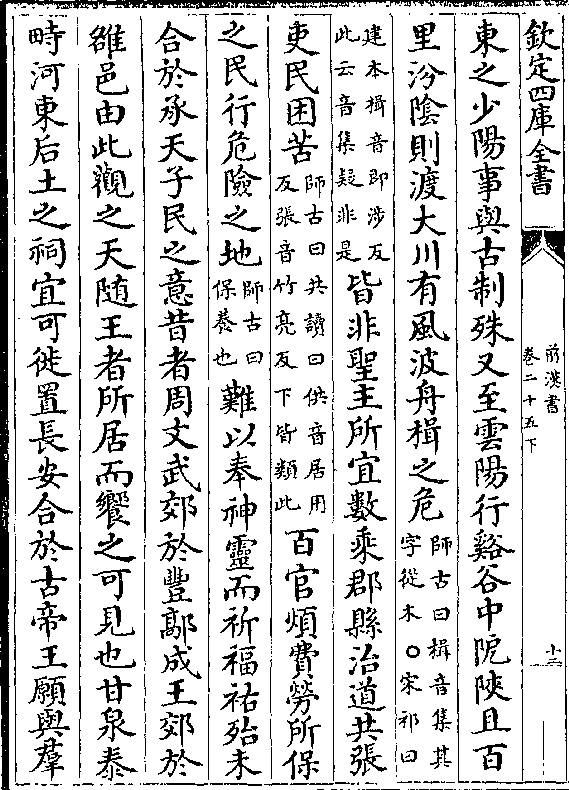 欽定四庫全書
前漢書
卷二十五下
東之少陽事與古制殊又至雲陽行谿谷中阸陜且百
里汾陰則渡大川有風波舟楫之危師古曰楫音集其字從木○宋祁曰
建本楫音即涉反此云音集疑非是皆非聖主所宜數乘郡縣治道共張
吏民困苦師古曰共讀曰供音居用反張音竹亮反下皆類此百官煩費勞所保
之民行危險之地師古曰保養也難以奉神靈而祈福祐殆未
合於承天子民之意昔者周文武郊於豐鄗成王郊於
雒邑由此觀之天随王者所居而饗之可見也甘泉泰
畤河東后土之祠宜可徙置長安合於古帝王願與羣